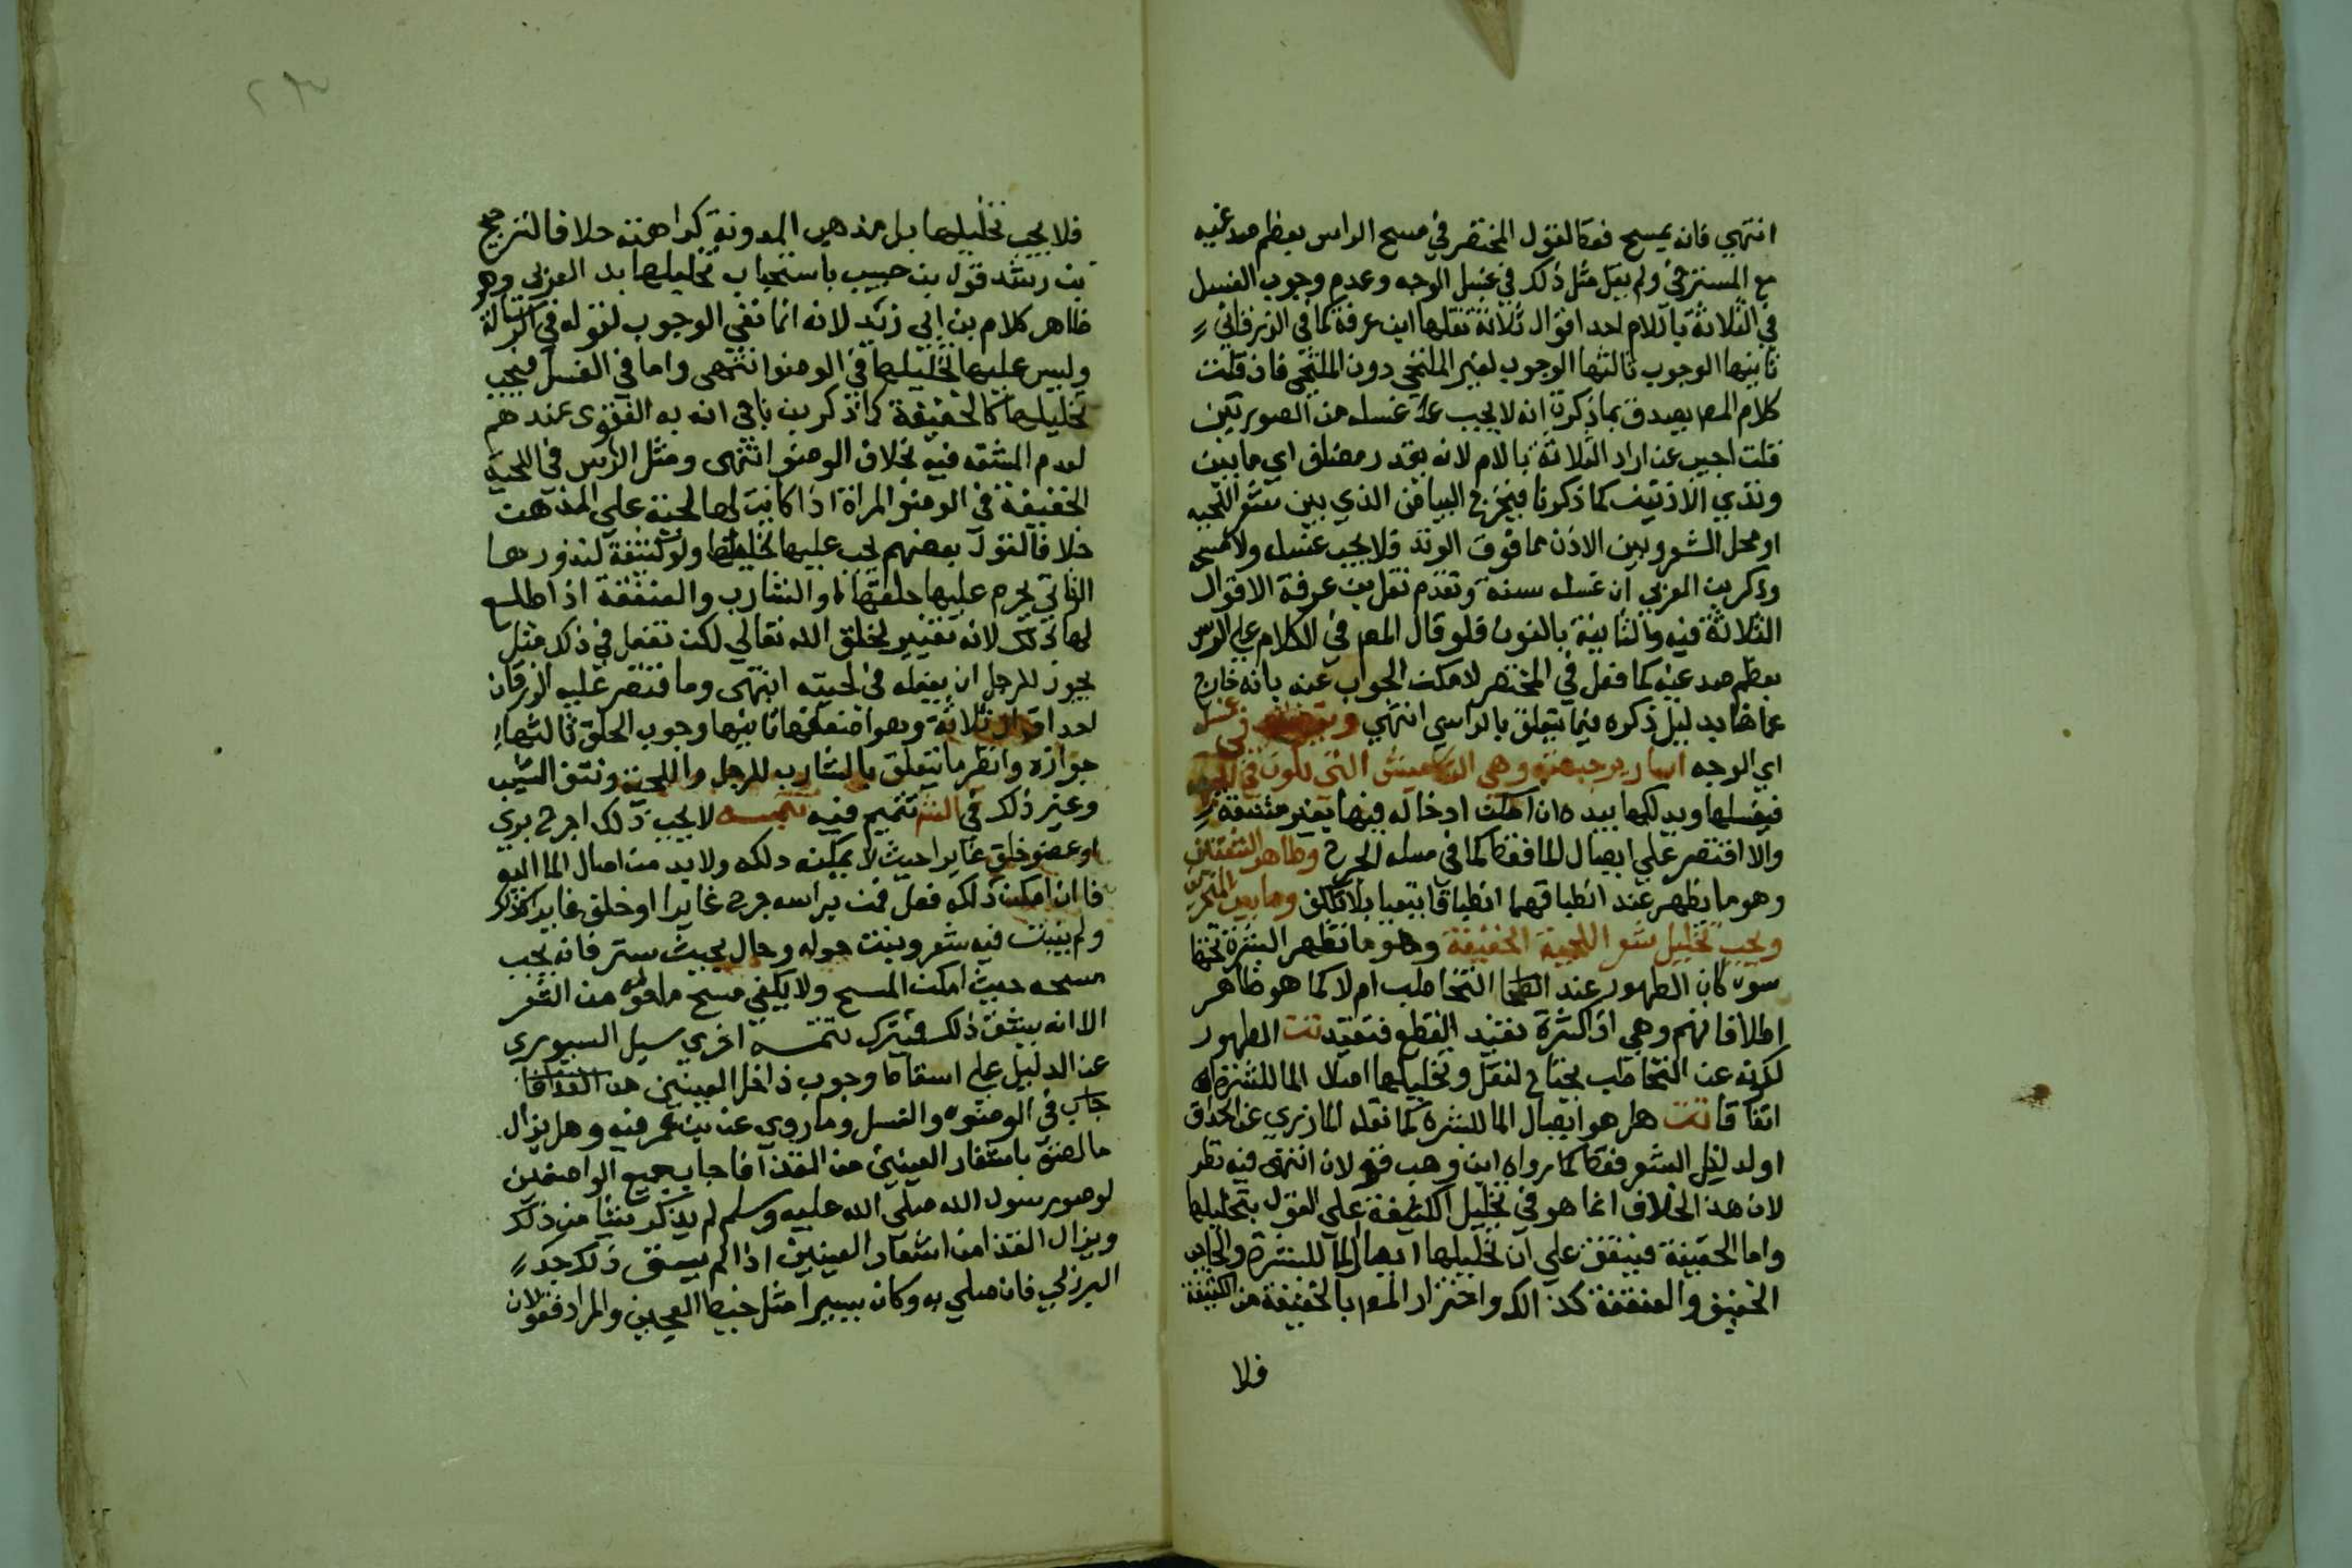 انتهي فانه يمسح فقط لقول المختصر في مسح الراس بعظم صدغيه
مع المسترخي ولم يقل مثل ذلك في غسل الوجه وعدم وجوب الغسل
في الثلاثة باللام احد اقوال ثلاثة نقلها ابن عرفة كما في الزرقاني
ثانيها الوجوب ثالثها الوجوب لغير الملتحي دون الملتحي فان قلت
كلام المص يصدق بما ذكرت انه لا يجب عليه غسله من الصورتين
قلت اجيب عن ايراد الثلاثة باللام لانه يقدر مضاف اي ما بين
وتدي الاذنين كما ذكرنا فيخرج البياض الذي بين شعر اللحيه
او محل الشعر وبين الاذن مما فوق الوتد فلا يجب غسله ولا مسحه
وذكر بن العربي ان غسله سنة وتقدم نقل بن عرفة الاقوال
الثلاثة فيه والثانية بالنون فلو قال المص في الكلام علي الراس
بعظم صدغيه كما فعل في المختصر لامكن الجواب عنه بانه خارج
عما هنا بدليل ذكره فيما يتعلق بالراس انتهي في غسل
اي الوجه اسارير جبهته وهي التكاميش التي تكون في الجبهه
فيغسلها ويدلكها بيده ان امكن ادخاله فيها بغير مشقة
والا اقتصر علي ايصال الما فقط كما في مسله الجرح وظاهر الشفتين
وهو ما يظهر عند انطباقهما انطباقا طبيعيا بلا تكلف وما بين المنخرين
ويجب تخليل شعر اللحية الخفيفة وهو ما تظهر البشرة تحتها
سوا كان الظهور عند التخاطب ام لا كما هو ظاهر
اطلاقاتهم وهي اذا كثرة تفيد القطع فتقييد تت الظهور
لكونه عند التخاطب يحتاج لنقل وتخليلها ايصال الما للبشرة
اتفاقا تت هل هو ايصال الما للبشرة كما نقله المازري عن الحذاق
او لدليل الشعر فقط كما رواه ابن وهب قولان انتهى فيه نظر
لان هذا الخلاف انما هو في تخليل الكثيفة علي القول بتخليلها
واما الخفيفة فيتفق علي ان تخليلها ايصال الما للبشرة والحاجب
الخفيف والعنفقة كذالك واحتزار المص بالخفيفة من الكثيفة
فلا
فلا يجب تخليلها بل مذهب المدونة كراهته خلافا لترجيح
بن رشد قول بن حبيب باستحباب تخليلها بد العزلي وهو
ظاهر كلام بن ابي زيد لانه انما نفي الوجوب لقوله في الرسالة
وليس عليها تخليلها في الوضوا انتهى واما في الغسل فيجب
تخليلها كالخفيفة كذا ذكر بن ناجي انه به الفتوى عندهم
لعدم المشقه فيه بخلاف الوضوا انتهى ومثل الرجل في اللحية
الخفيفة في الوضو المراة اذا كانت لها لحية علي المذهب
خلافا لقول بعضهم يجب عليها تخليلها ولو كثيفة لندورها
الثاني يحرم عليها حلقها لها والشارب والعنفقة اذا طلع
لها ذلك لانه تغيير لخلق الله تعالي لكن تفعل في ذلك مثل
يجوز للرجل ان يفعله في لحيته انتهى وما اقتصر عليه الزرقاني
احد اقوال ثلاثة وهو اضعفها ثانيها وجوب الحلق ثالثها
جوازه وانظر ما يتعلق بالشارب للرجل واللحية ونتف الشيب
وغير ذلك في تتميم فيه تتمه لا يجب ذلك اجرح بري
او عضو خلق غايرا حيث لا يمكنه دلكه ولا بد من ايصال الما اليه
فا ان امكن ذلكه فعل فمن براسه جرح غايرا او خلق غايرا كذلك
ولم ينبت فيه شعر وبنت حوله وطال بحيث ستر فانه يجب
مسحه حيث امكن المسح ولا يكفي مسح ما فوقه من الشعر
الا انه يشق ذلك فيترك تتمه اخري سيل السيوري
عن الدليل علي اسقاط وجوب داخل العينين من
جاب في الوضوه والغسل وما روي عن بن عمر فيه وهل يزال
ما لصق باشفار العينين من القذا فاجاب جميع الواصفين
لوضو رسول الله صلي الله عليه وسلم لم يذكروا شيئا من ذلك
ويزال القذا من اشفار العينين اذا لم يشق ذلك جد
البرزلي فان صلي به وكان يسيرا مثل خيط العجين والمراد فقولان